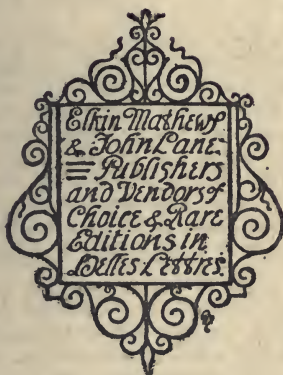 Elkin Mathews
& John Lane
Publishers
and Vendors of
Choice & Rare
Editions in
Belles Lettres.